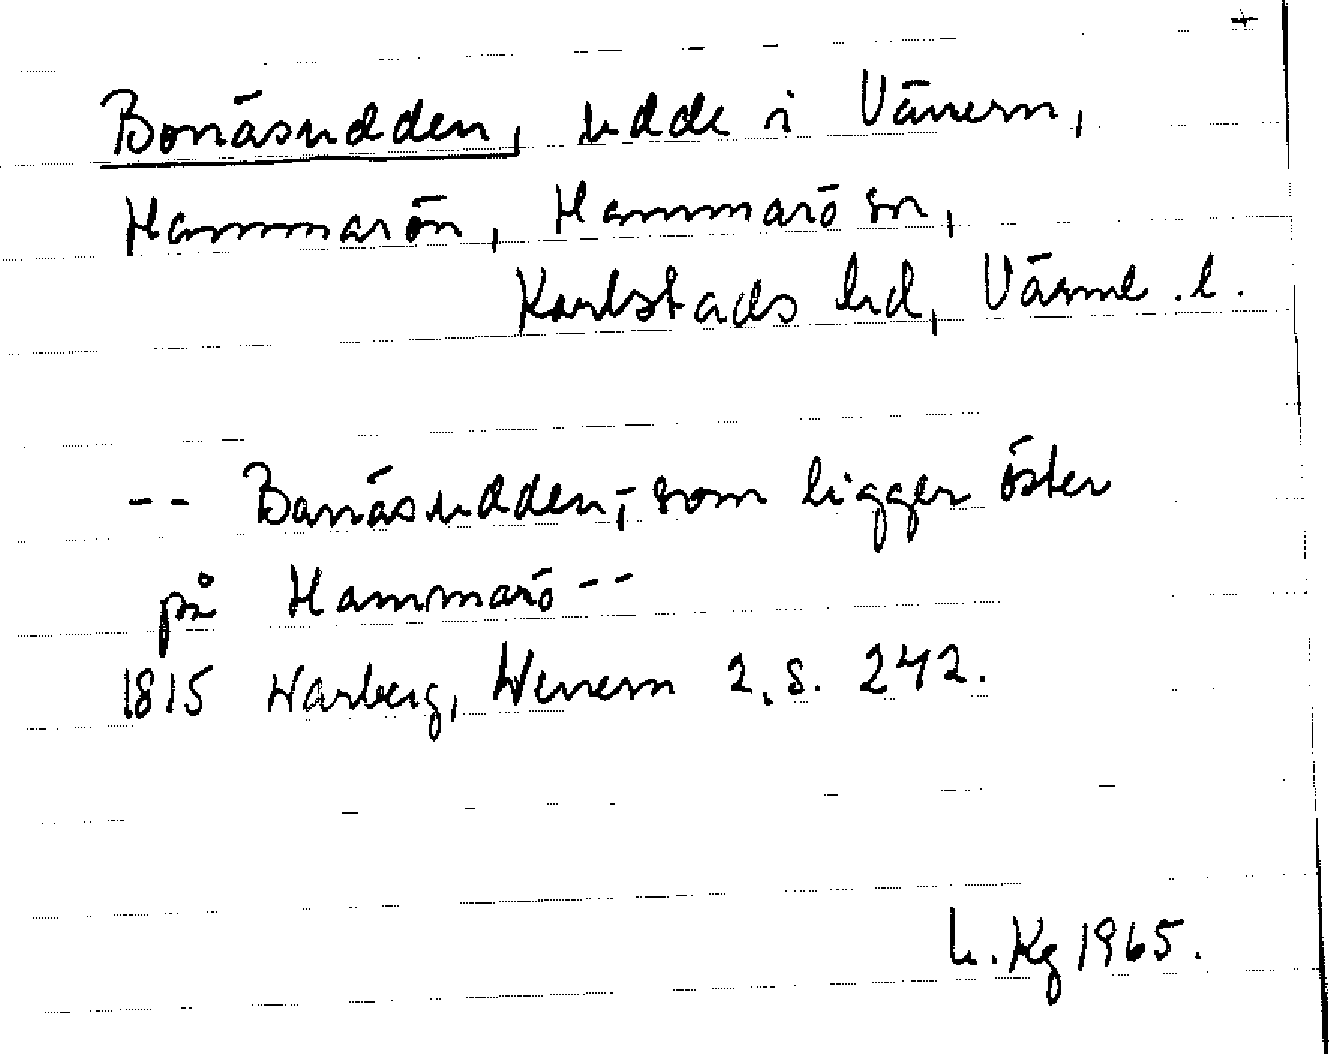 +
Bonäsudden, udde i Vänern,
Hammarön, Hammarö sn,
Karlstads hd, Värml. l.
-- Banäsudden, - som ligger öster
på Hammarö --
1815 Warberg, Wenern 2, s. 242.
L. Kg 1965.